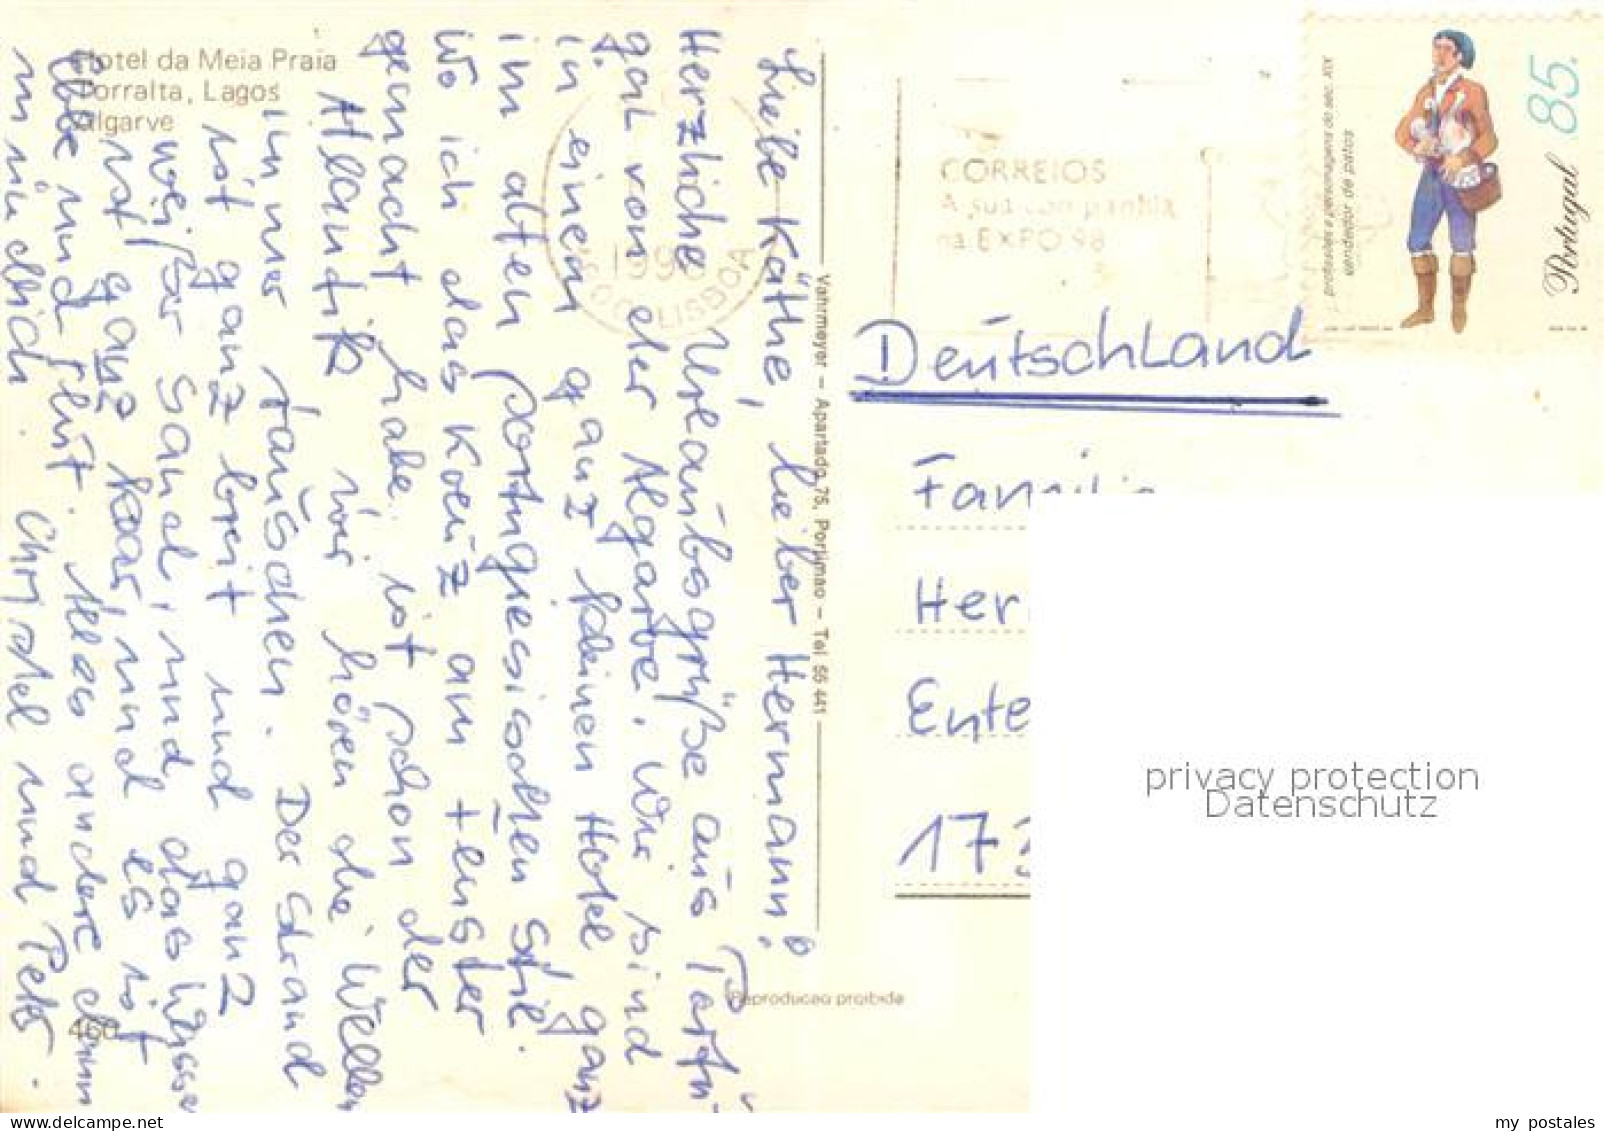 Hotel da Meia Praia
Torralta, Lagos
Algarve
Liebe Käthe, lieber Hermann,
Herzliche Urlaubsgrüße aus Portu-
gal von der Algarve. Wir sind
in einem ganz kleinen Hotel ganz
im alten portugiesischen Stil.
Wo ich das Kreuz am Fenster
gemacht habe ist schon der
Atlantik wir hören die Wellen
immer rauschen. Der Strand
ist ganz breit und ganz
weißer Sand, und das Wasser
ist ganz klar, und es ist
Ebbe und Flut. Alles andere dann
mündlich. Christel und Peter.
460
Vahrmeyer – Apartado 75, Portimao – Tel 55 441
Reproducao proibida
1998
LISBOA
CORREIOS
A sua companhia
na EXPO 98
profissões e personagens do séc. XIX
vendedor de patos
Portugal 85.
Deutschland
Familie
Her
Ente
17
privacy protection
Datenschutz
my postales